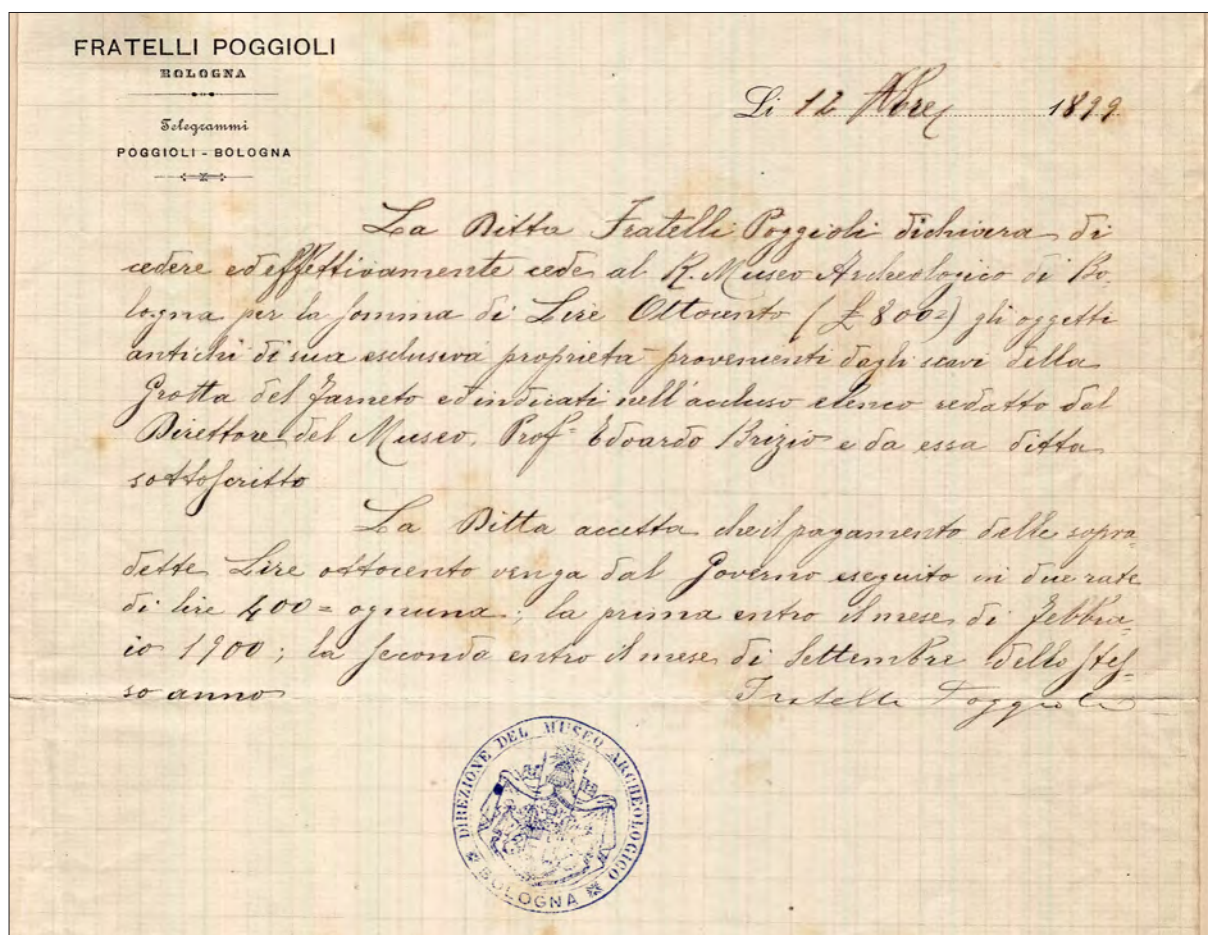 FRATELLI POGGIOLI
BOLOGNA
Telegrammi
POGGIOLI - BOLOGNA
Li 12 1899
La Ditta Fratelli Poggioli dichiara di
cedere ed effettivamente cede al R. Museo Archeologico di Bo-
logna per la somma di Lire Ottocento (£ 800=) gli oggetti
antichi di sua esclusiva proprietà provenienti dagli scavi della
Grotta del Farneto ed indicati nell'accluso elenco redatto dal
Direttore del Museo, Prof= Edoardo Brizio e da essa ditta
sottoscritto
La Ditta accetta che il pagamento delle sopra-
dette Lire ottocento venga dal Governo eseguito in due rate
di lire 400= ognuna; la prima entro il mese di Febbra-
io 1900; la seconda entro il mese di Settembre dello stes-
so anno
Fratelli Poggioli
DIREZIONE DEL MUSEO ARCHEOLOGICO
BOLOGNA